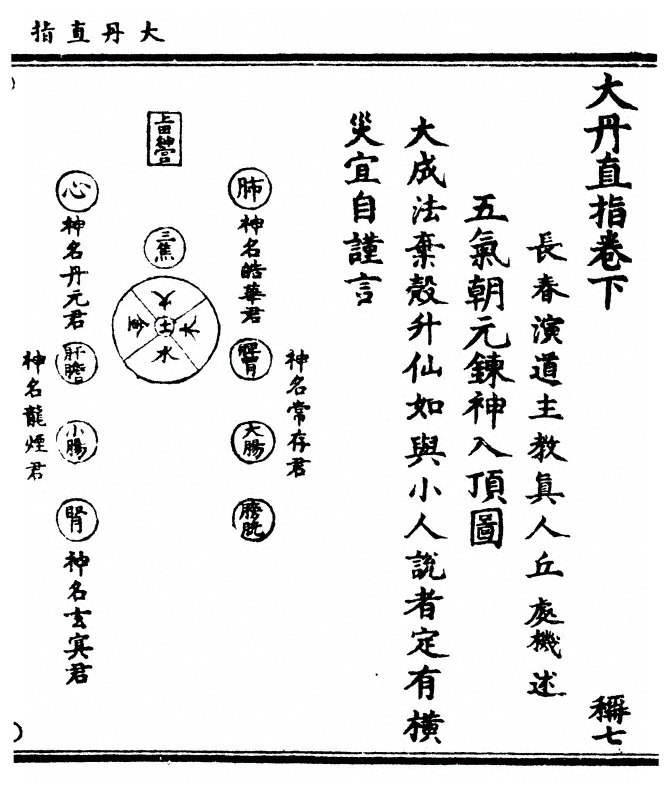 大丹直指
大丹直指卷下
稱七
長春演道主教眞人丘處機述
五氣朝元鍊神入頂圖
大成法棄殼升仙如與小人說者定有橫
災宜自謹言
肺
神名皓華君
脾胃
神名常存君
大腸
膀胱
上田神宮
三焦
火
木
土
金
水
心
神名丹元君
肝膽
神名龍煙君
小腸
腎
神名玄冥君